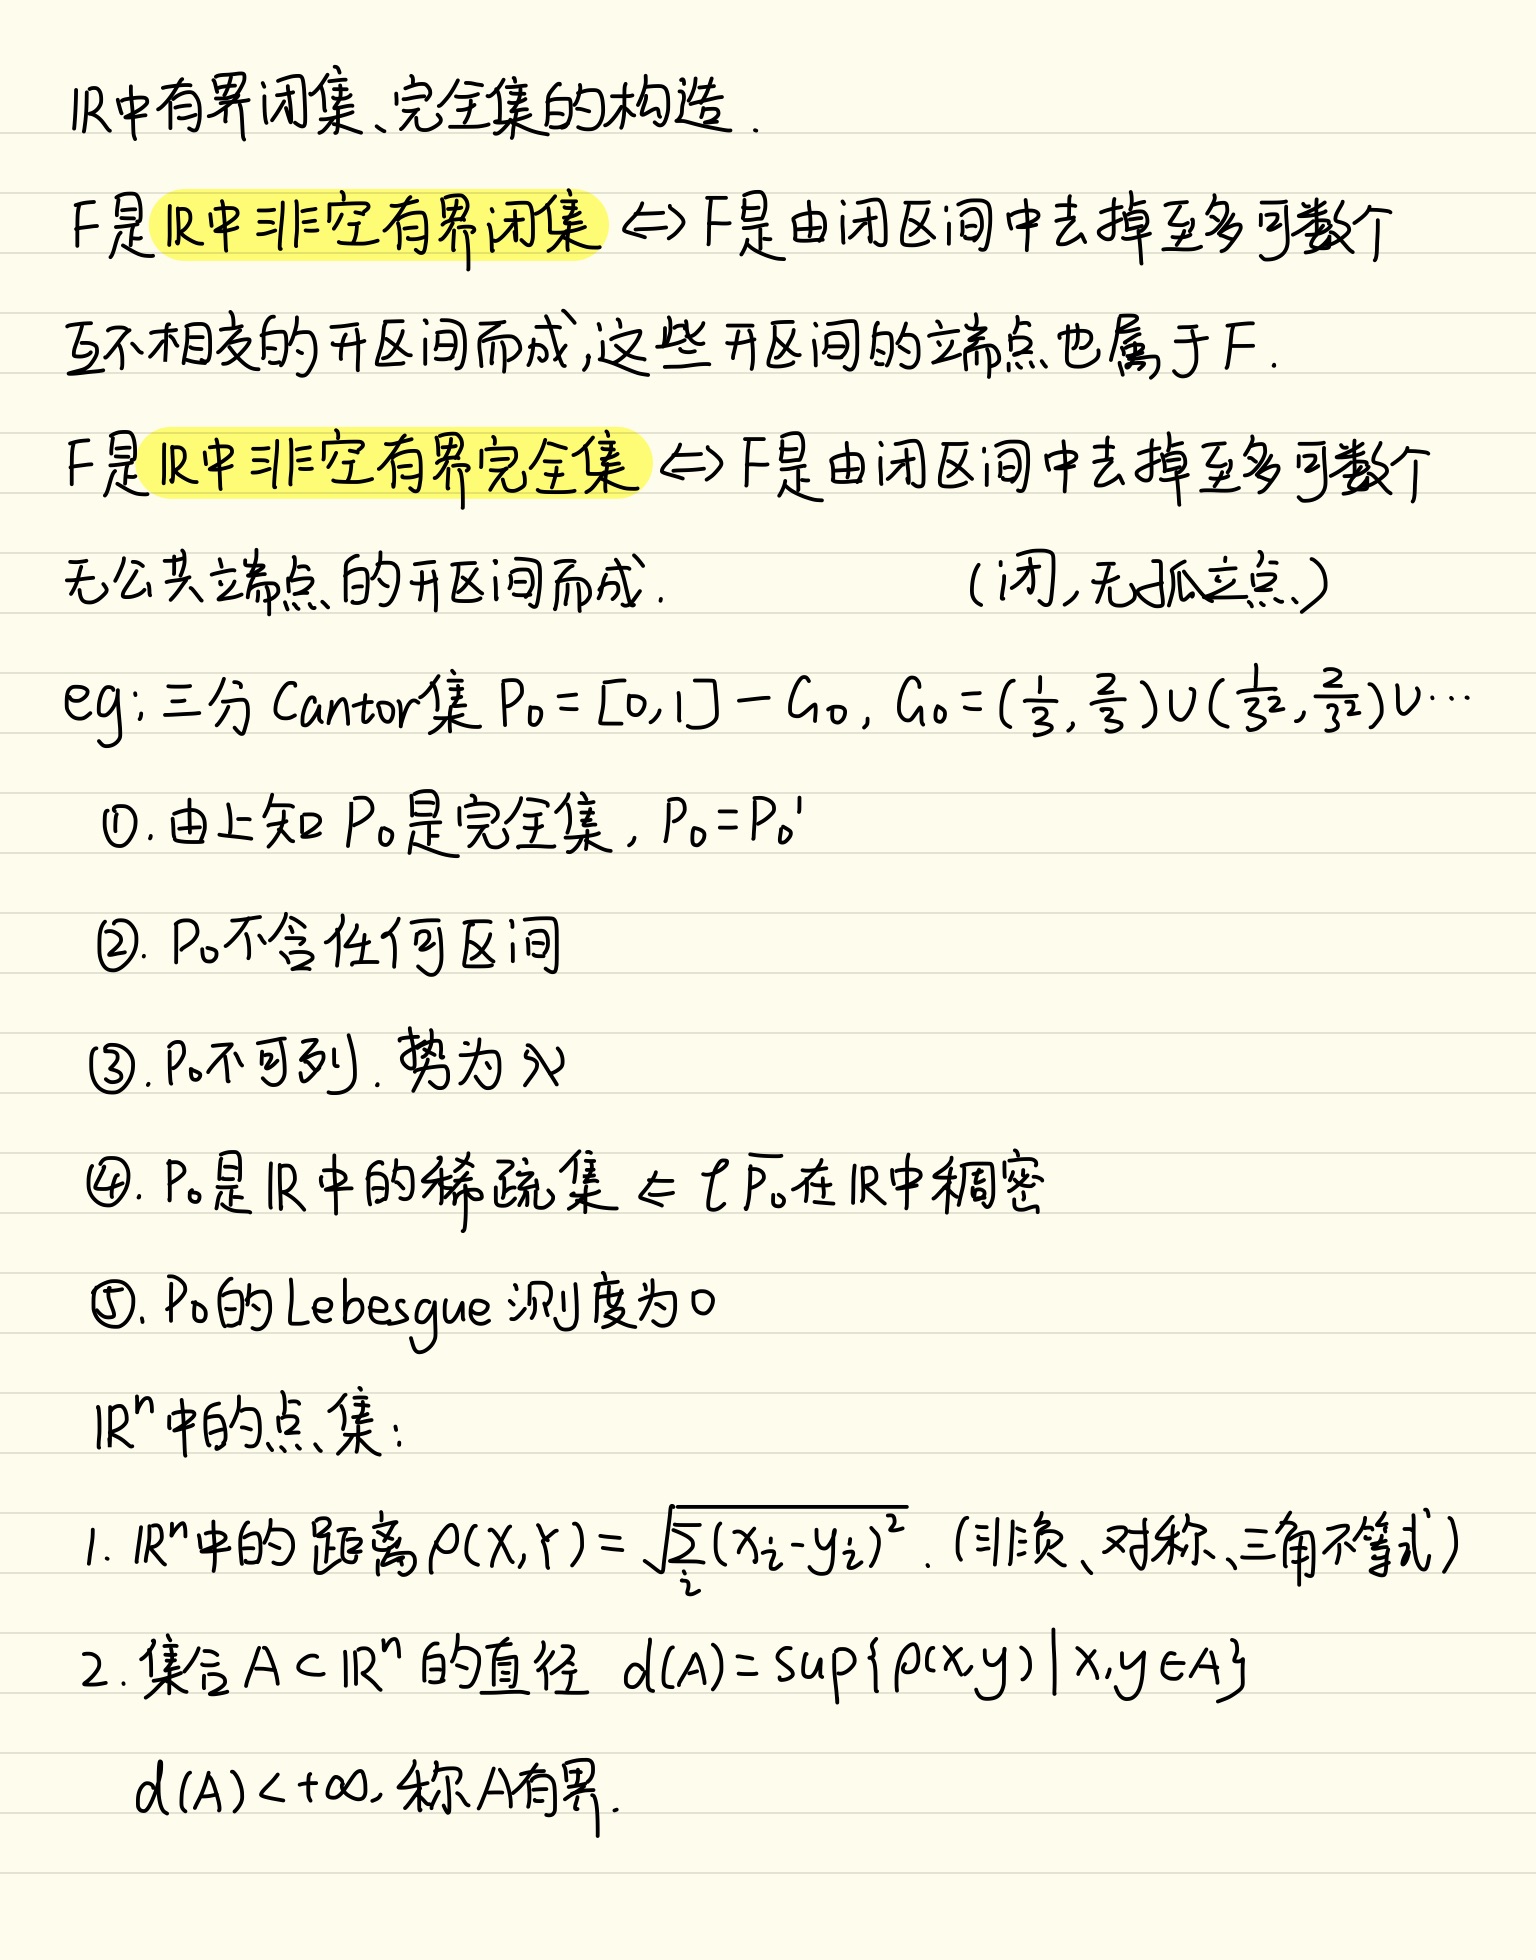 ℝ中有界闭集、完全集的构造.
F是ℝ中非空有界闭集 ⇔ F是由闭区间中去掉至多可数个
互不相交的开区间而成,这些开区间的端点也属于F.
F是ℝ中非空有界完全集 ⇔ F是由闭区间中去掉至多可数个
无公共端点的开区间而成. (闭,无孤立点)
eg: 三分Cantor集 P₀=[0,1]-G₀, G₀=(1/3, 2/3)∪(1/3², 2/3²)∪⋯
①. 由上知 P₀是完全集, P₀=P₀'
②. P₀不含任何区间
③. P₀不可列. 势为 ℵ
④. P₀是ℝ中的稀疏集 ⇐ ∁P̅₀在ℝ中稠密
⑤. P₀的Lebesgue测度为0
ℝⁿ中的点集:
1. ℝⁿ中的距离 ρ(X,Y)=√(∑ᵢ(xᵢ-yᵢ)²). (非负、对称、三角不等式)
2. 集合A⊂ℝⁿ的直径 d(A)=sup{ρ(x,y)|x,y∈A}
d(A)<+∞, 称A有界.